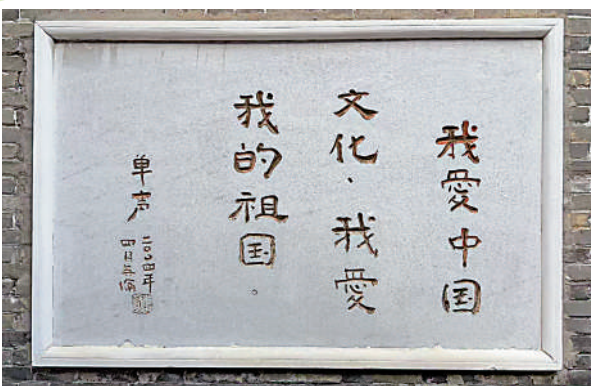 我愛中国
文化、我愛
我的祖国。
单声
二〇〇四年
四月于伦